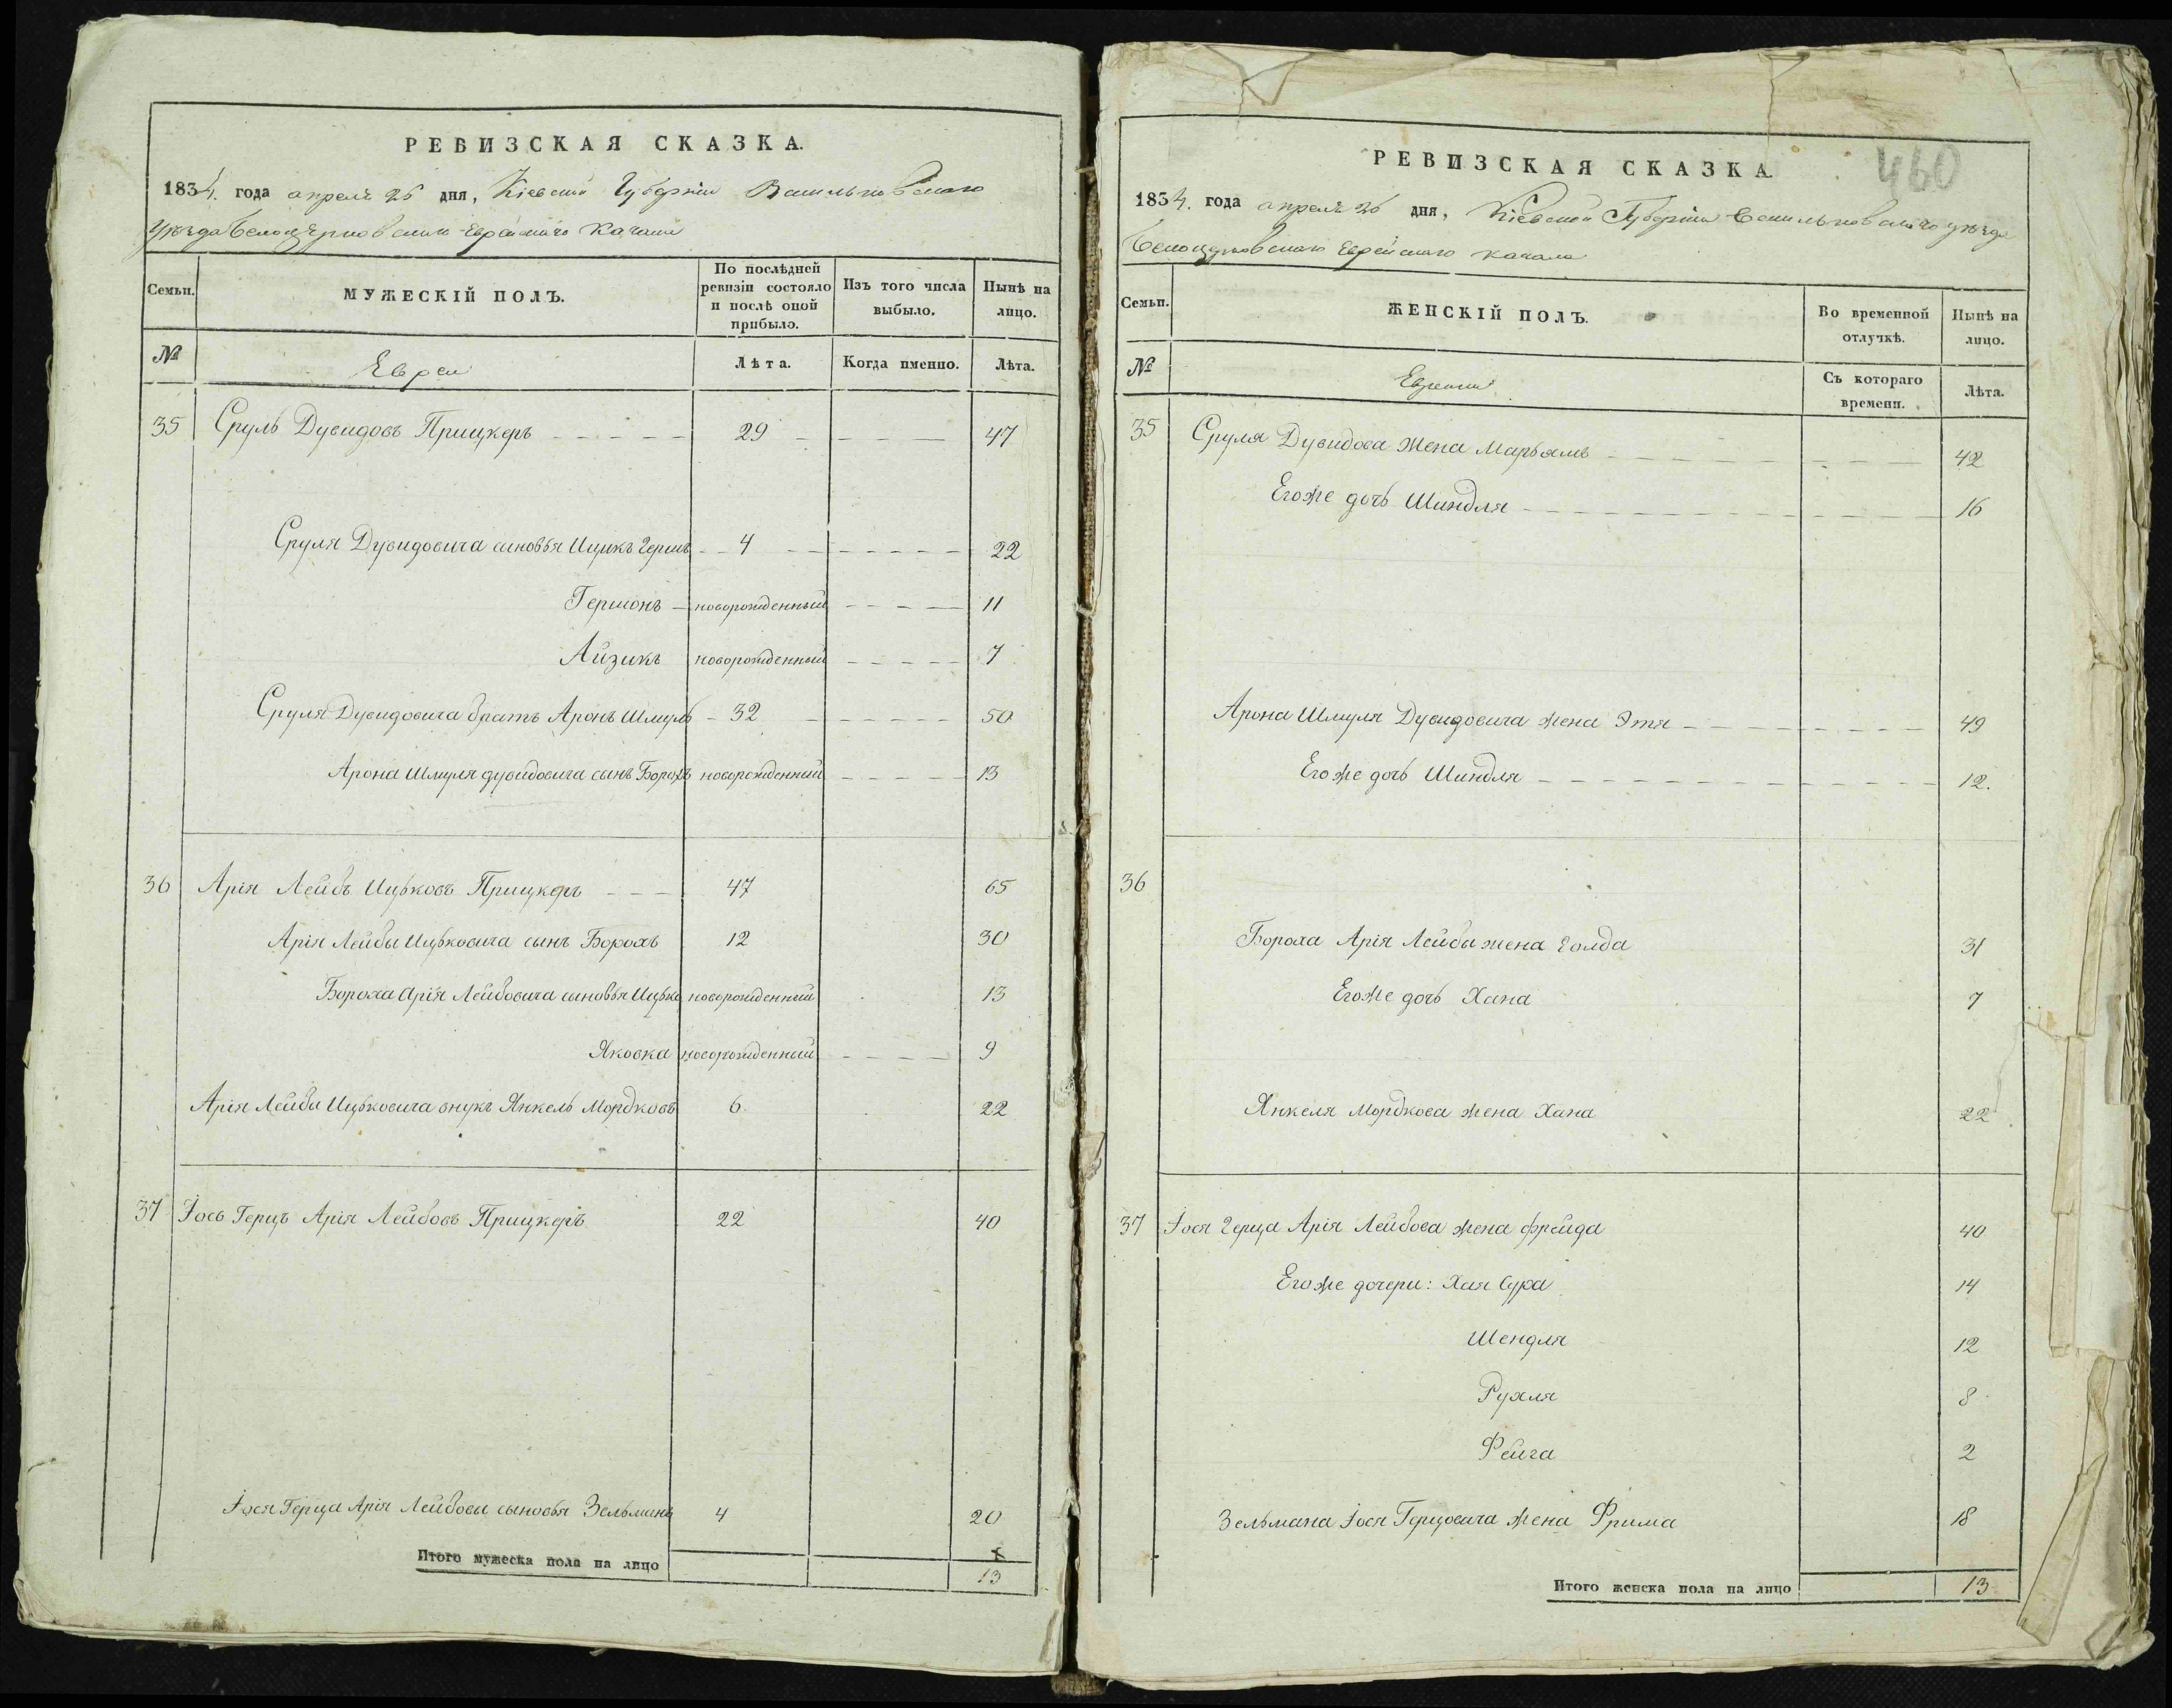 РЕВИЗСКАЯ СКАЗКА.
1834. года апреля 26 дня, Кіевской Губерніи Васильковскаго
уѣзда Белоцерковскаго Еврейскаго Кагала
Семьи. МУЖЕСКІЙ ПОЛЪ. По послѣдней ревизіи состояло и послѣ оной прибыло. Изъ того числа выбыло. Нынѣ на лицо.
№ Евреи Лѣта. Когда именно. Лѣта.
35 Сруль Дувидовъ Прицкеръ 29 47
Сруля Дувидовича сыновья Ицикъ Герш 4 22
Гершонъ новорожденный 11
Айзикъ новорожденный 7
Сруля Дувидовича братъ Аронъ Шмуль 32 50
Арона Шмуля Дувидовича сынъ Борохъ новорожденный 13
36 Арія Лейбъ Ицьковъ Прицкеръ 47 65
Арія Лейбы Ицьковича сынъ Борохъ 12 30
Бороха Арія Лейбовича сыновья Ицько новорожденный 13
Яковка новорожденный 9
Арія Лейбы Ицьковича внукъ Янкель Мордковъ 6 22
37 Іось Герцъ Арія Лейбовъ Прицкеръ 22 40
Іося Герца Арія Лейбовы сыновья Зельманъ 4 20
Итого мужеска пола на лицо 13
460
РЕВИЗСКАЯ СКАЗКА.
1834. года апреля 26 дня, Кіевской Губерніи Васильковскаго уѣзда
Белоцерковскаго Еврейскаго кагала
Семьи. ЖЕНСКІЙ ПОЛЪ. Во временной отлучкѣ. Нынѣ на лицо.
№ Съ котораго времени. Лѣта.
35 Сруля Дувидова жена Марьямъ 42
Егоже дочь Шиндля 16
Арона Шмуля Дувидовича жена Этя 49
Егоже дочь Шиндля 12.
36
Бороха Арія Лейбы жена Голда 31
Егоже дочь Хана 7
Янкеля Мордкова жена Хана 22
37 Іося Герца Арія Лейбова жена Фрейда 40
Егоже дочери: Хая Сура 14
Шендля 12
Рухля 8
Фейга 2
Зельмана Іося Герцовича жена Фрима 18
Итого женска пола на лицо 13